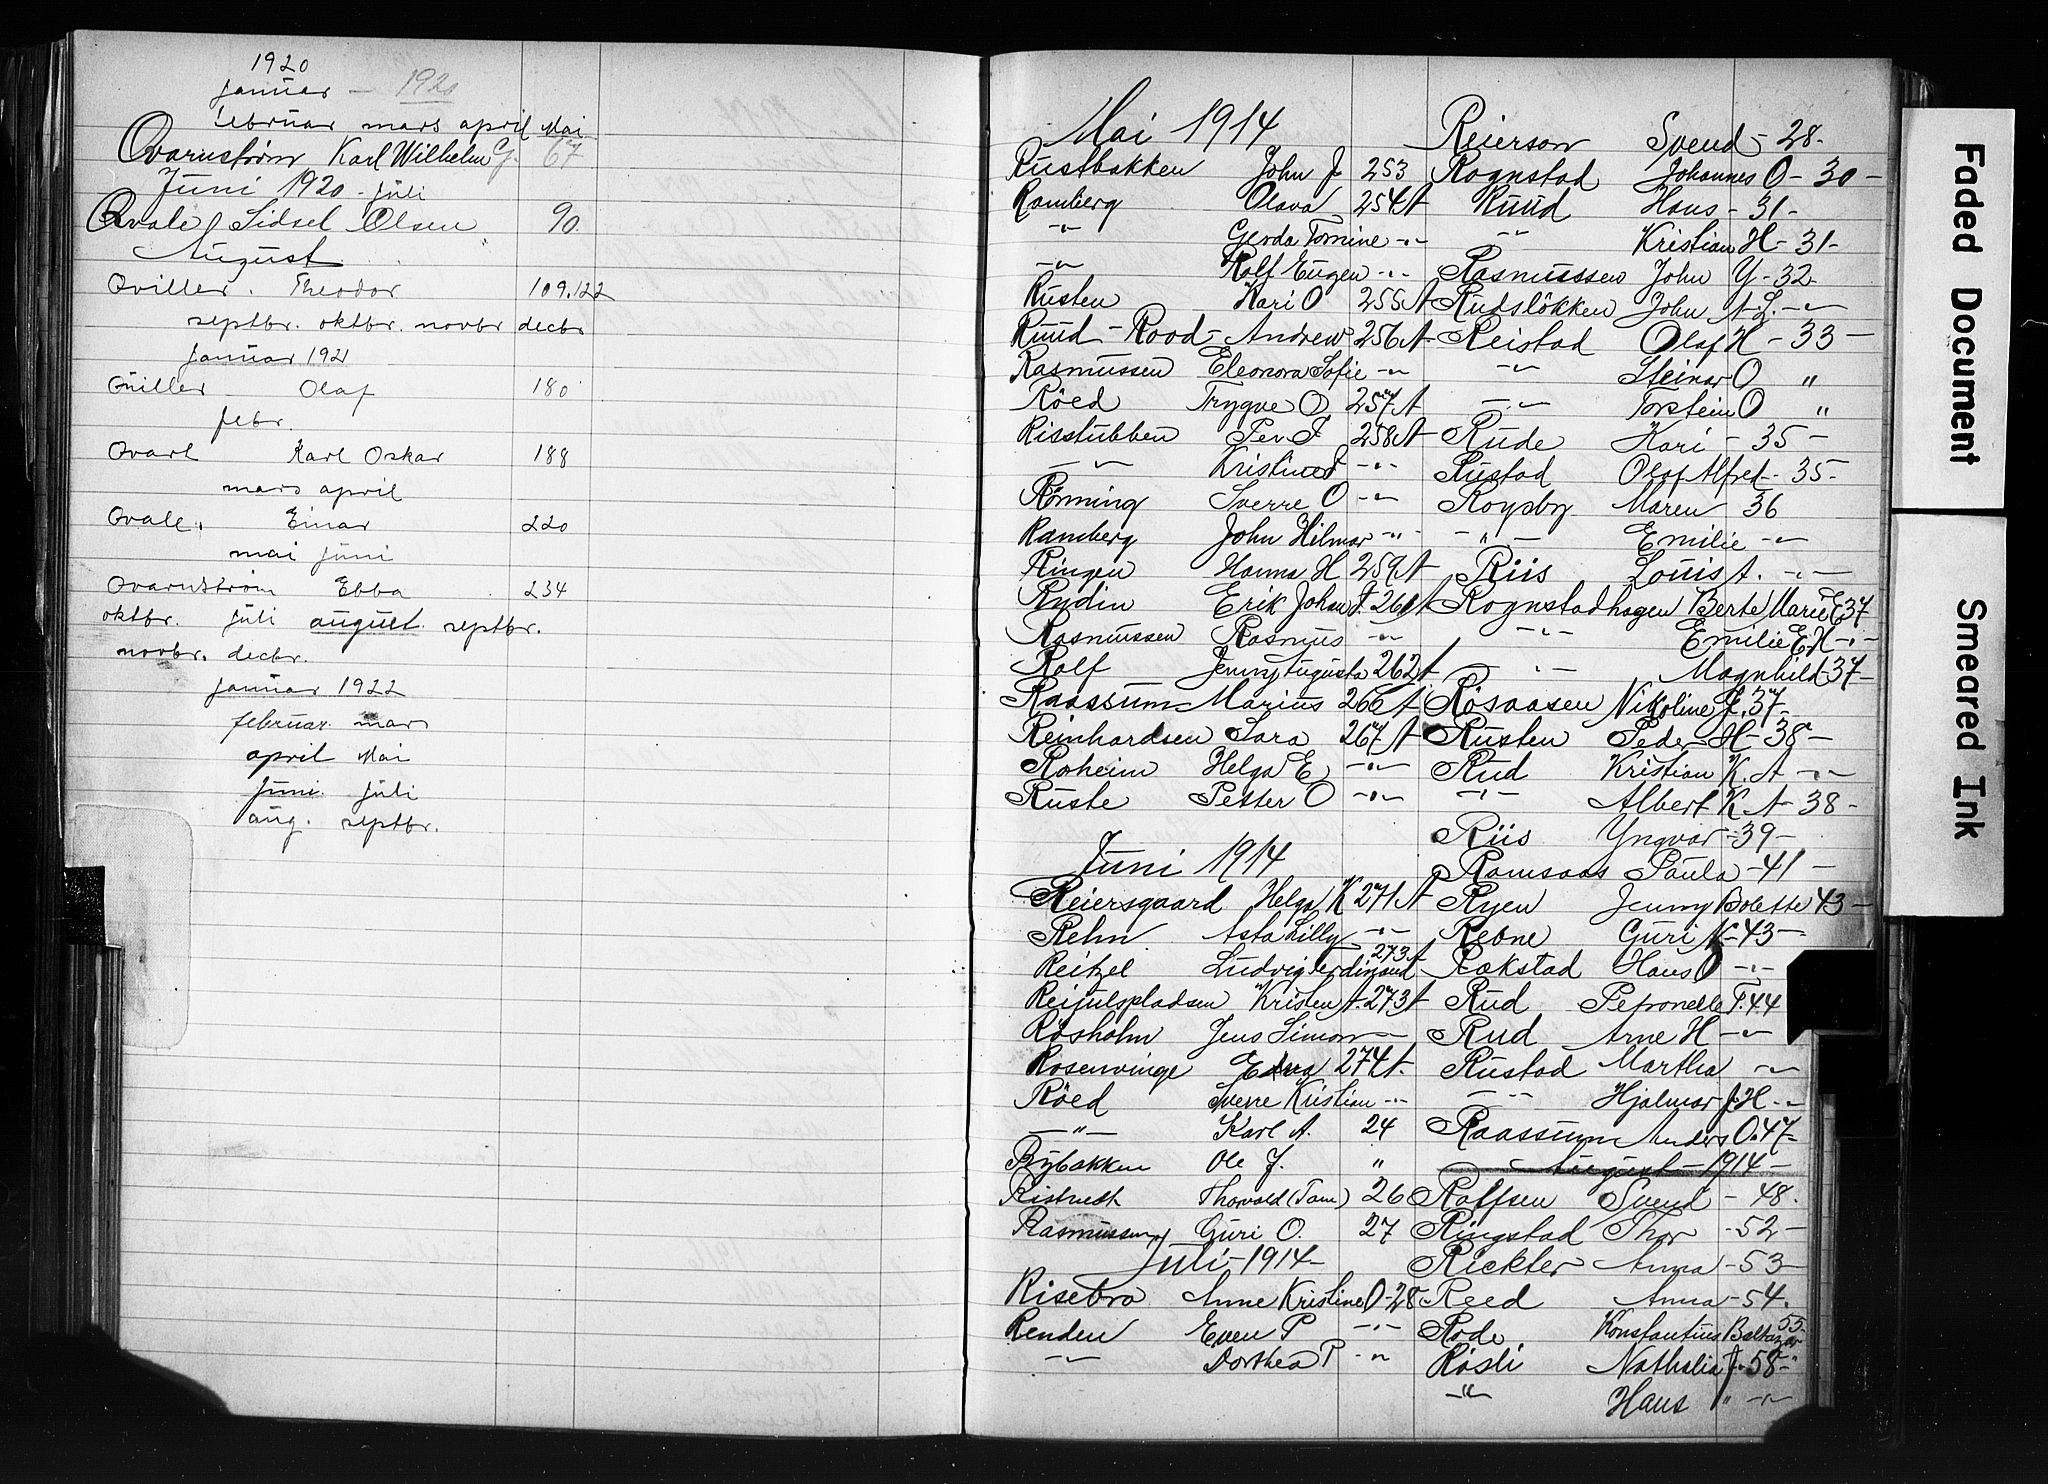 1920
januar — 1920
februar mars april Mai
Qvarnstrøm Karl Wilhelm G. 67
Juni 1920 - juli
Qvale, Sidsel Olsen 90
August
Qviller. Theodor 109.122
septbr. oktbr. novbr decbr
januar 1921
Qviller Olaf 180
febr.
Qvarl Karl Oskar 188
mars april
Qvale, Einar 220
mai juni
Qvarnstrøm Ebba 234
oktbr. juli august septbr.
novbr. decbr.
januar 1922
februar. mars
april Mai
Juni. juli
aug. septbr.
Mai 1914
Rustbakken John J. 253
Ramberg Olava 254 A
-"- Gerda Tomine -"-
-"- Rolf Eugen -"-
Rusten Kari O 255 A
Ruud - Rood - Andrew 256 A
Rasmussen Eleonora Sofie -"-
Röed Trygve O 257 A
Risstubben Per J 258 A
-"- Kristine J -"-
Rönning Sverre O -"-
Ramberg John Hilmar -"-
Ringen Hanna H 259 A
Rydin Erik Johan F. 260 A
Rasmussen Rasmus -"-
Rolf Jenny Augusta 262 A
Raassum Marius 266 A
Reinhardsen Sara 267 A
Roheim Helga E -"-
Ruste Petter O -"-
Juni 1914
Reiersgaard Helga K 271 A
Rehn Asta Lilly -"-
Reitzel Ludvig Ferdinand 273 A
Reijulspladsen Kristen A. 273 A
Rösholm Jens Simon —
Rosenvinge Edna 274 A.
Röed Sverre Kristian -"-
-"- Karl A. 24
Rybakken Ole J. "
Ristvedt Thorvald (Tom) 26
Rasmussen Guri O. 27
Juli - 1914 -
Risebro Anne Kristine O - 28
Renden Even P -"-
-"- Dorthea P -"-
Reierson Svend - 28 -
Rognstad Johannes O - 30 -
Ruud Hans - 31 -
-"- Kristian H - 31 -
Rasmusssen John Y - 32
Rudslökken John A. L. -"-
Reistad Olaf H - 33 -
-"- Steinar O "
-"- Torstein O "
Rude Kari - 35 -
Rustad Olaf Alfred - 35 -
Rognsby Maren 36
-"- Emilie -"-
Riis Louis A. -"-
Rognstadhagen Berte Marie E 37
-"- Emilie E. H -"-
-"- Magnhild - 37 -
Rösaasen Nikoline J. 37 -
Rusten Peder H - 38 -
Rud Kristian K. A -"-
-"- Albert K. A - 38 -
Riis Yngvar - 39 -
Ramsaas Paula - 41 -
Ryen Jenny Bolette 43 -
Rebne Guri K - 43 -
Rakstad Hans O -"-
Rud Petronelle T. 44
Rud Arne H -"-
Rustad Martha -"-
-"- Hjalmar J. H -"-
Raassum Anders O. 47 -
August - 1914 -
Rolfsen Svend - 48.
Ringstad Thor - 52 -
Rickter Anna - 53
Reed Anna - 54.
Rode Konstantius Baltazar 55
Rösli Nathalia J. - 58 -
-"- Hans " -"-
Faded Document
Smeared Ink